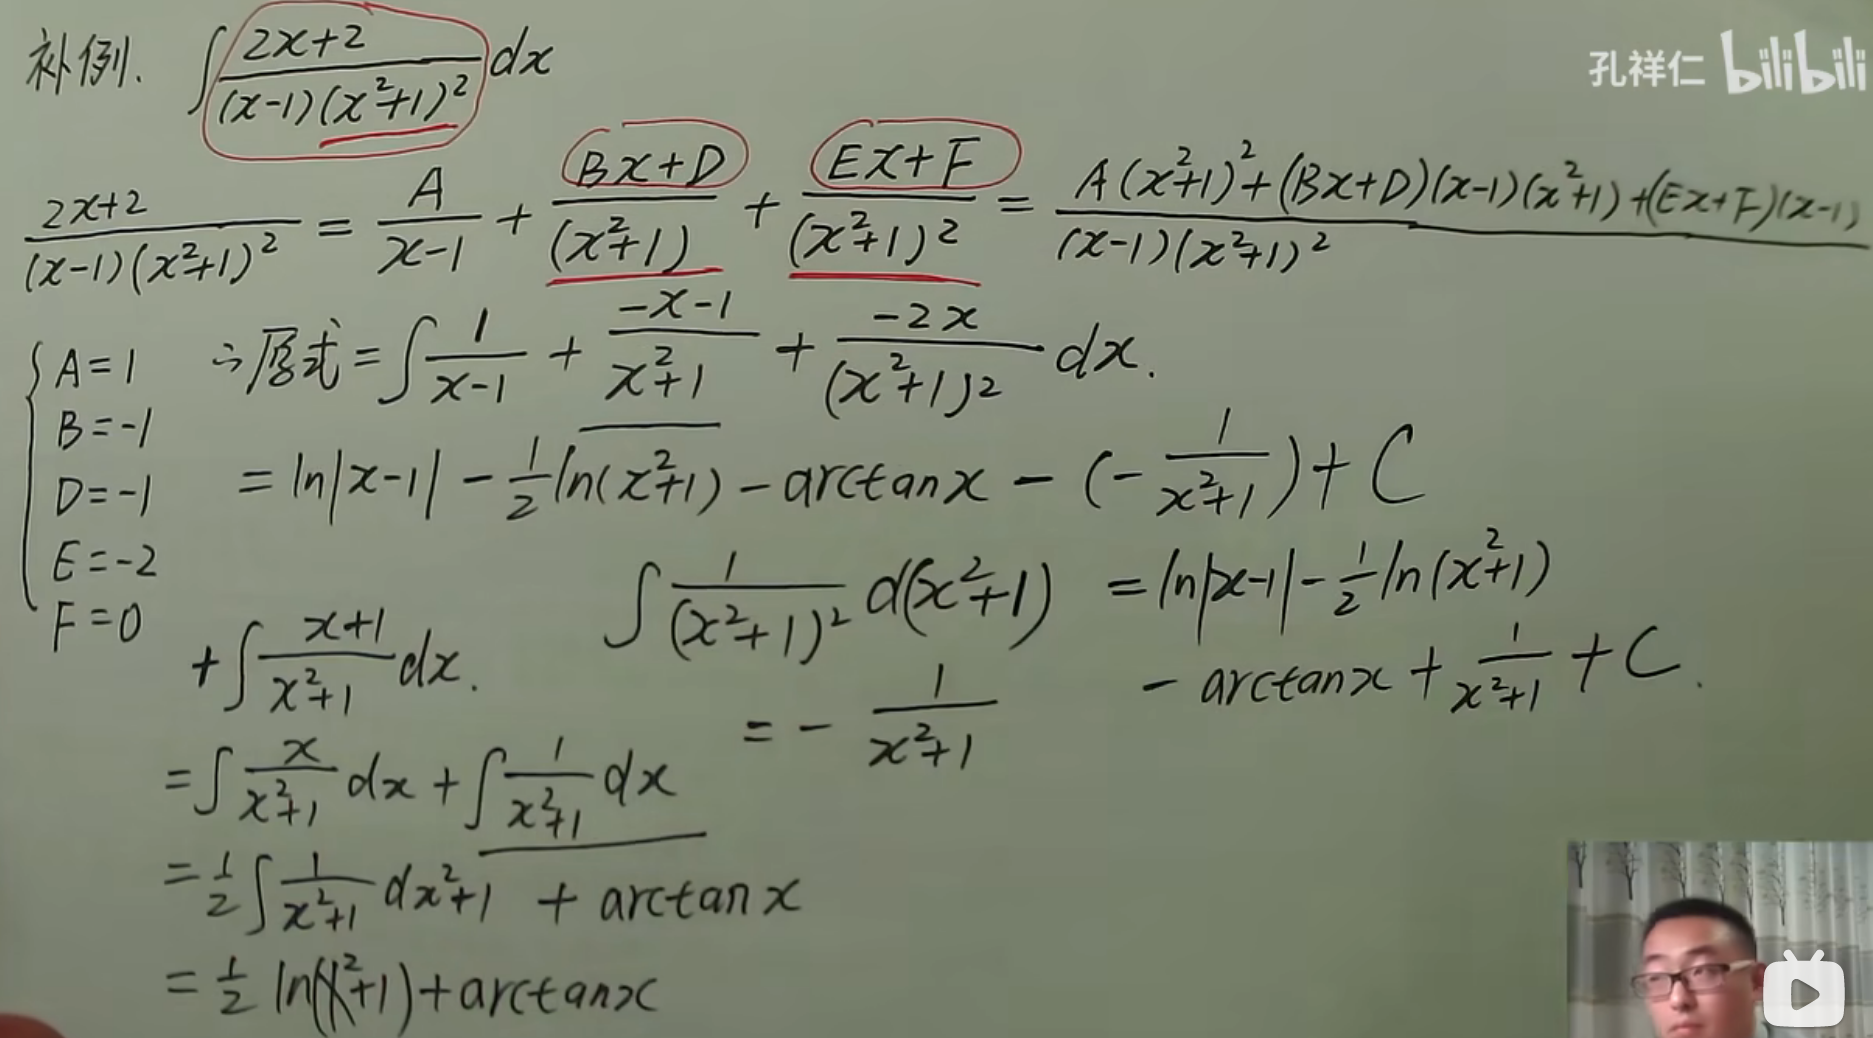 补例. ∫ (2x+2)/((x-1)(x²+1)²) dx
孔祥仁 bilibili
(2x+2)/((x-1)(x²+1)²) = A/(x-1) + (Bx+D)/(x²+1) + (Ex+F)/(x²+1)² = (A(x²+1)²+(Bx+D)(x-1)(x²+1)+(Ex+F)(x-1))/((x-1)(x²+1)²)
A=1
B=-1
D=-1
E=-2
F=0
∴原式=∫ 1/(x-1) + (-x-1)/(x²+1) + (-2x)/(x²+1)² dx.
= ln|x-1| - 1/2 ln(x²+1) - arctanx - (- 1/(x²+1)) + C
+∫ (x+1)/(x²+1) dx.
=∫ x/(x²+1) dx + ∫ 1/(x²+1) dx
=1/2 ∫ 1/(x²+1) dx²+1 + arctanx
= 1/2 ln(x²+1)+arctanx
∫ 1/(x²+1)² d(x²+1)
= - 1/(x²+1)
= ln|x-1| - 1/2 ln(x²+1)
- arctanx + 1/(x²+1) + C.